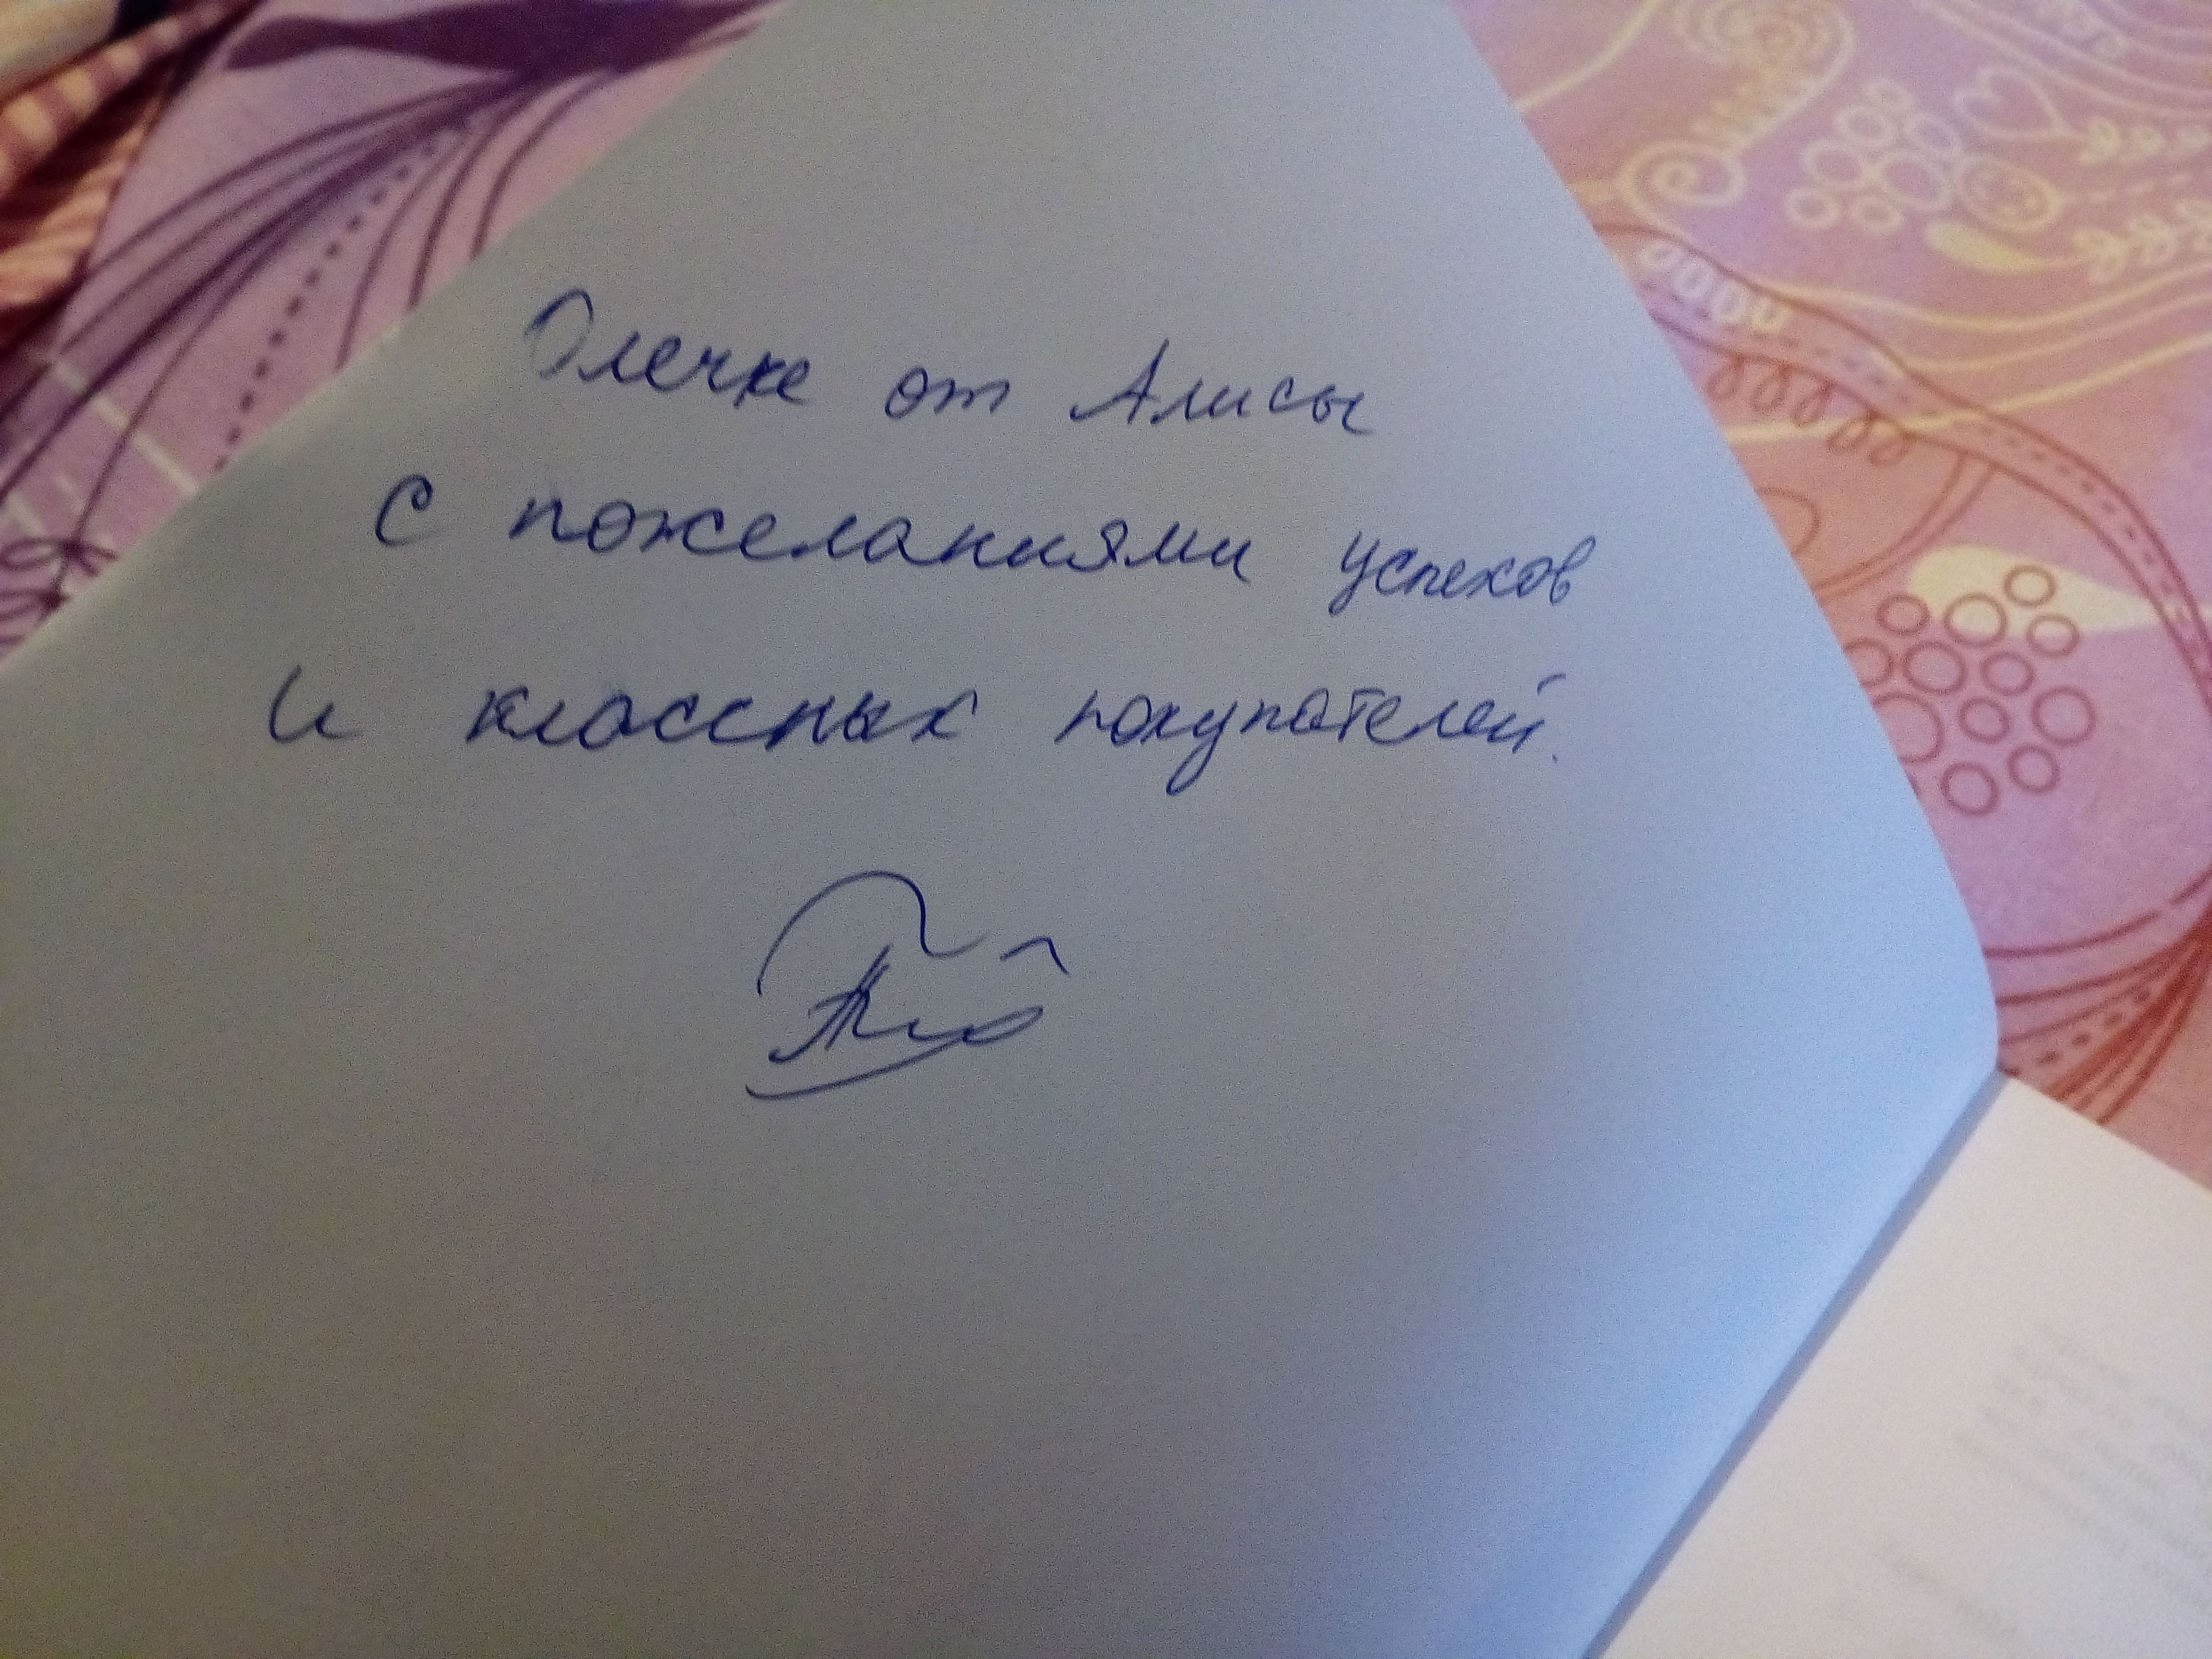 Олечке от Алисы
с пожеланиями успехов
и классных покупателей.